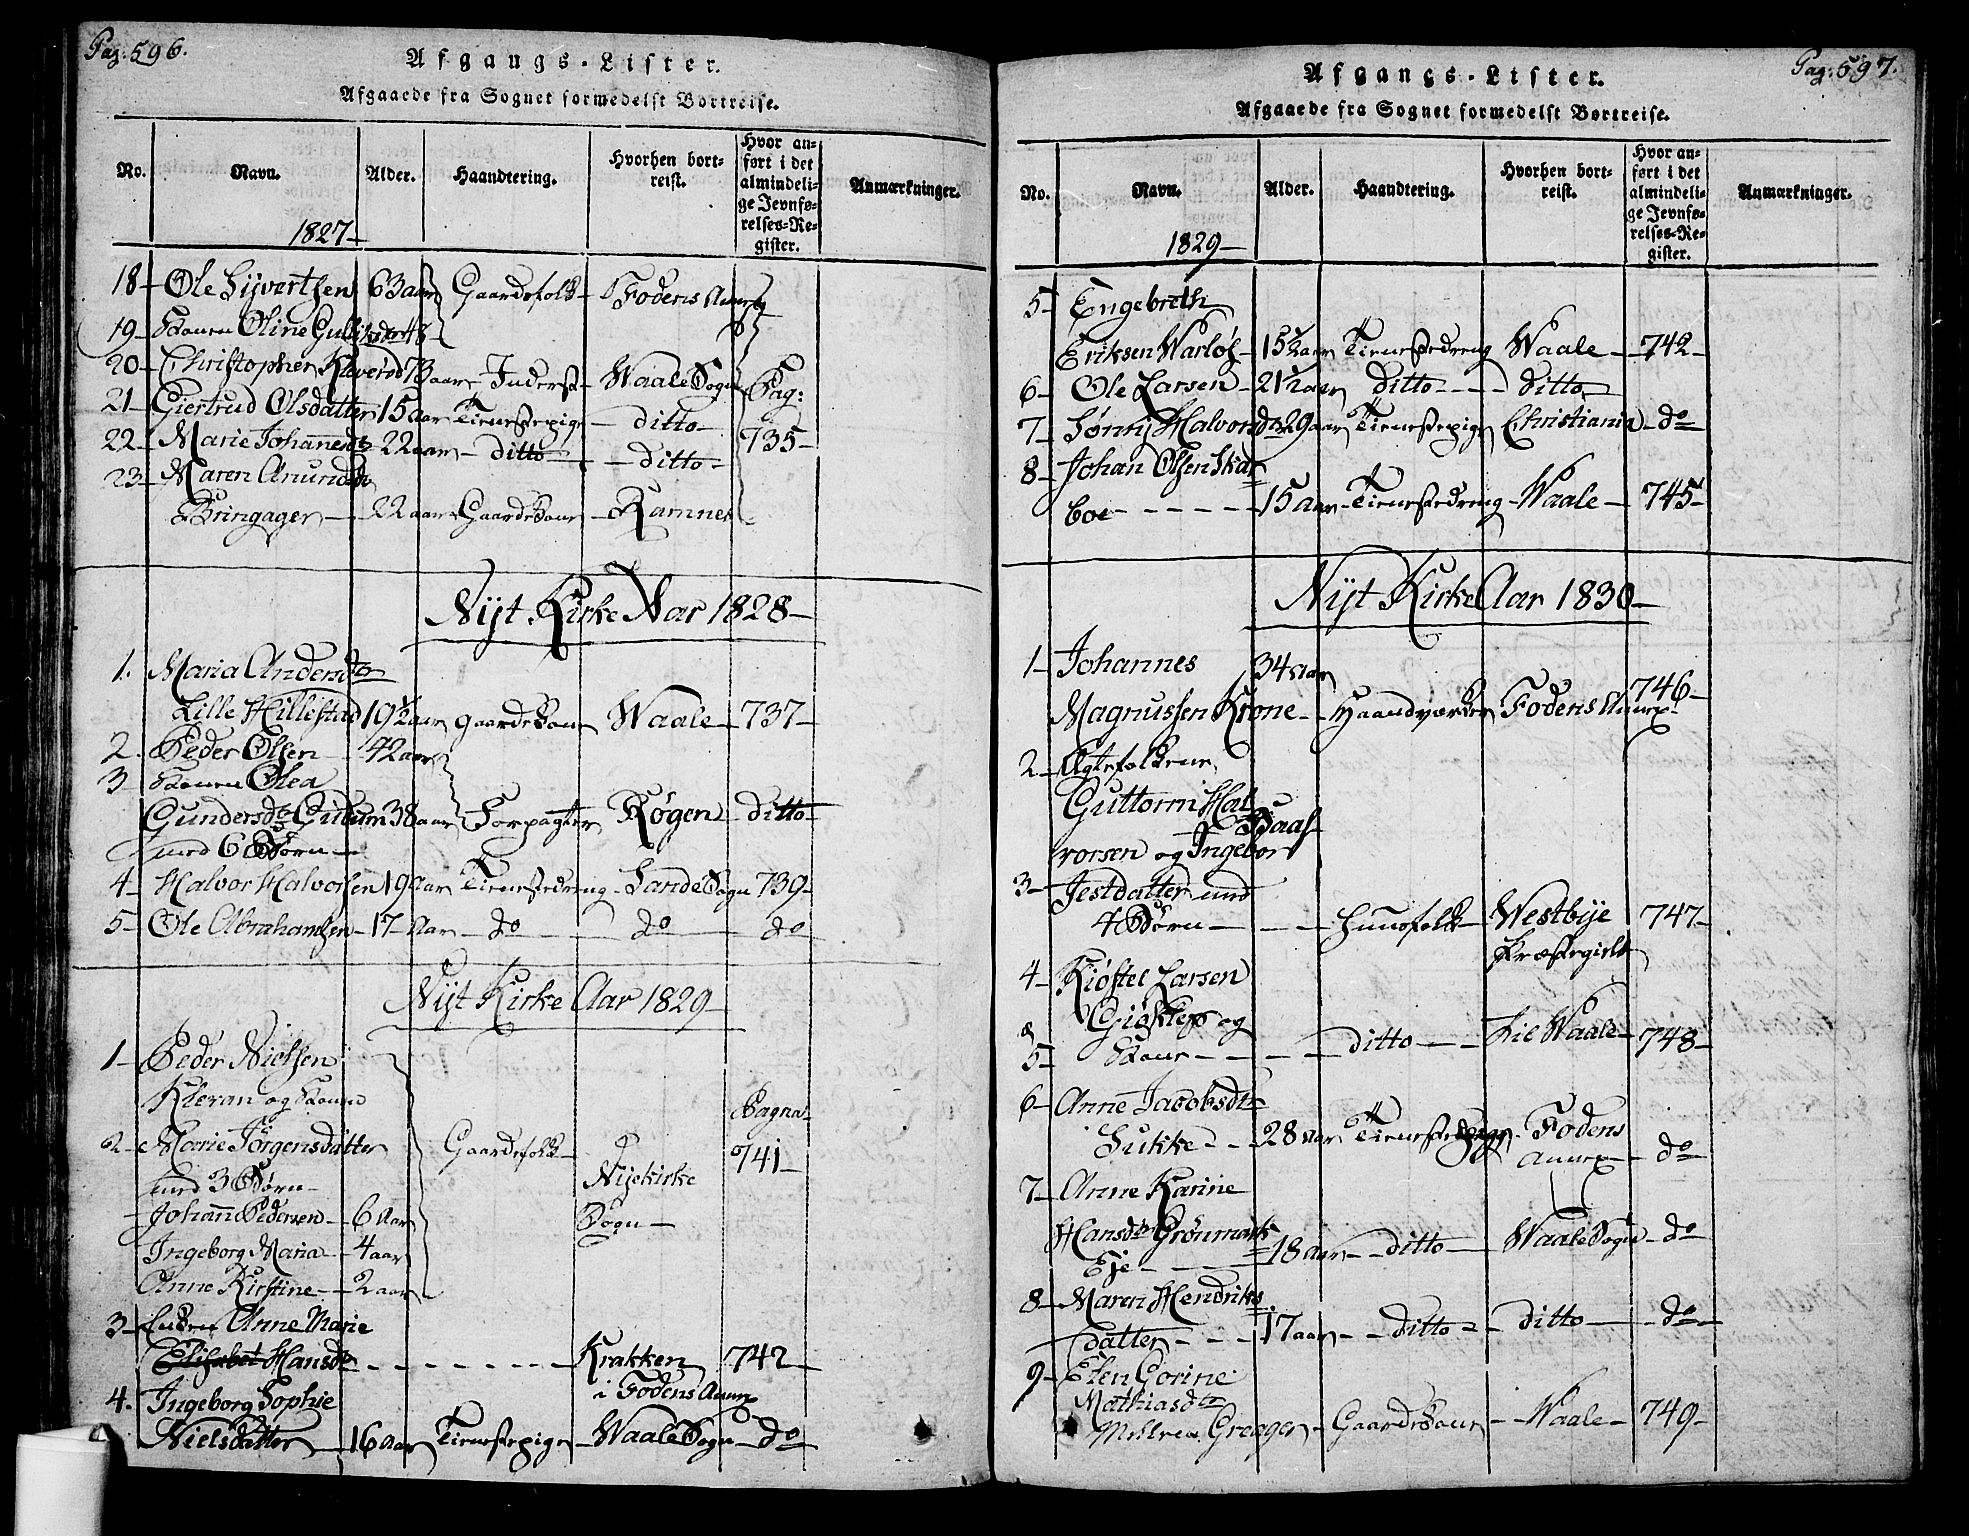 Pag: 596.
Afgangs-Lister.
Afgaaede fra Sognet formedelst Bortreise.
No. Navn. Alder. Haandtering. Hvorhen bortreist. Hvor anført i det almindelige Jevnførelses-Register. Anmærkninger.
1827-
18- Ole Sijvertsen 63 aar Gaardefolk- Fodens Annex
19- Konen Oline
20- Christopher 73 aar- Inderst- Waale Sogn Pag:
21- Giertrud Olsdatter 15 aar Tienestepige - ditto-
22- Marie Johannesdr 22 aar- ditto - ditto- 735-
23- Maren Anundsdr
Bringager- 22 aar Gaardekone - Ramnes
Nyt Kirke Aar 1828-
1. Maria Andersdtr
Lille Hillestad 19½ aar gaardekone Waale- 737-
2. Peder Olsen- 42 aar
3 Konen Olea
Gundersdr 38 aar Forpagter Røgen- ditto-
med 6 Børn-
4- Halvor Halvorsen 19 Aar Tienestedreng- Sande Sogn 739-
5- Ole Abrahamsen- 17- Aar- do - do do
Nyt Kirke Aar 1829-
1- Peder Nielsen
Kleran og Konen Pagna-
2- Marie Jörgensdatter Gaardefolk- 741-
med 3 Børn- Nijekirke
Johan Pedersen- 6 Aar Sogn-
Ingeborg Maria- 4 aar
Anne Kirstine- 2 aar
3- Enken Anne Marie
Elisabet Hansdr - - - - - Krakken 742-
4. Ingeborg Sophie i Fodens Annex
Nielsdatter- 16 Aar Tienestepige- Waale Sogn- do
Pag: 597.
Afgangs-Lister.
Afgaaede fra Sognet formedelst Bortreise.
No. Navn. Alder. Haandtering. Hvorhen bortreist. Hvor anført i det almindelige Jevnførelses-Register. Anmærkninger.
1829-
5- Engebreth
Eriksen Warløs- 15½ aar Tienestedreng Waale- 742-
6- Ole Larsen- 21½ aar ditto- - ditto
7- Halvorsdr 29 aar Tienestepige Christiania- do
8- Johan Olsen Skar
boe - - - - - 15 aar- Tienestedreng- Waale- 745-
Nyt Kirke Aar 1830-
1- Johannes 34 aar
Magnussen Krone- Haandværker Fodens Annex 746-
2- Ægtefolkene
Guttorm Hal
vorsen og Ingebor
3- Jestdatter med
4 Børn- - - - Huusfolk- Westbije 747-
Præstegield
4- Kiøstel Larsen
og
& 5- Kone- - - - ditto- - Lie Waale- 748-
6- Anne Jacobsdtr
Sukke- - 28 aar Tienestepige- Fodens
Annex- do
7- Anne Karine
Hansdr Grönmark
Eje- - - 18 aar- - ditto- Waale Sogn- do
8- Maren Hendriks
datter- - - 17 aar- - ditto- - ditto- - do
9- Elen Gorine
Mathiasdtr
Greager- Gaardekone - - Waale- 749-